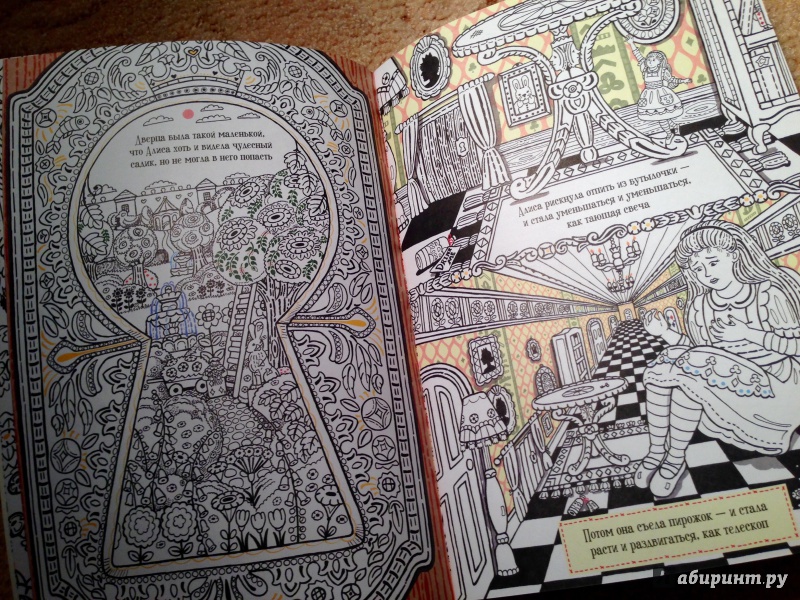 Дверца была такой маленькой,
что Алиса хоть и видела чудесный
садик, но не могла в него попасть
Алиса рискнула отпить из бутылочки —
и стала уменьшаться и уменьшаться,
как тающая свеча
Потом она съела пирожок — и стала
расти и раздвигаться, как телескоп
абиринт.ру